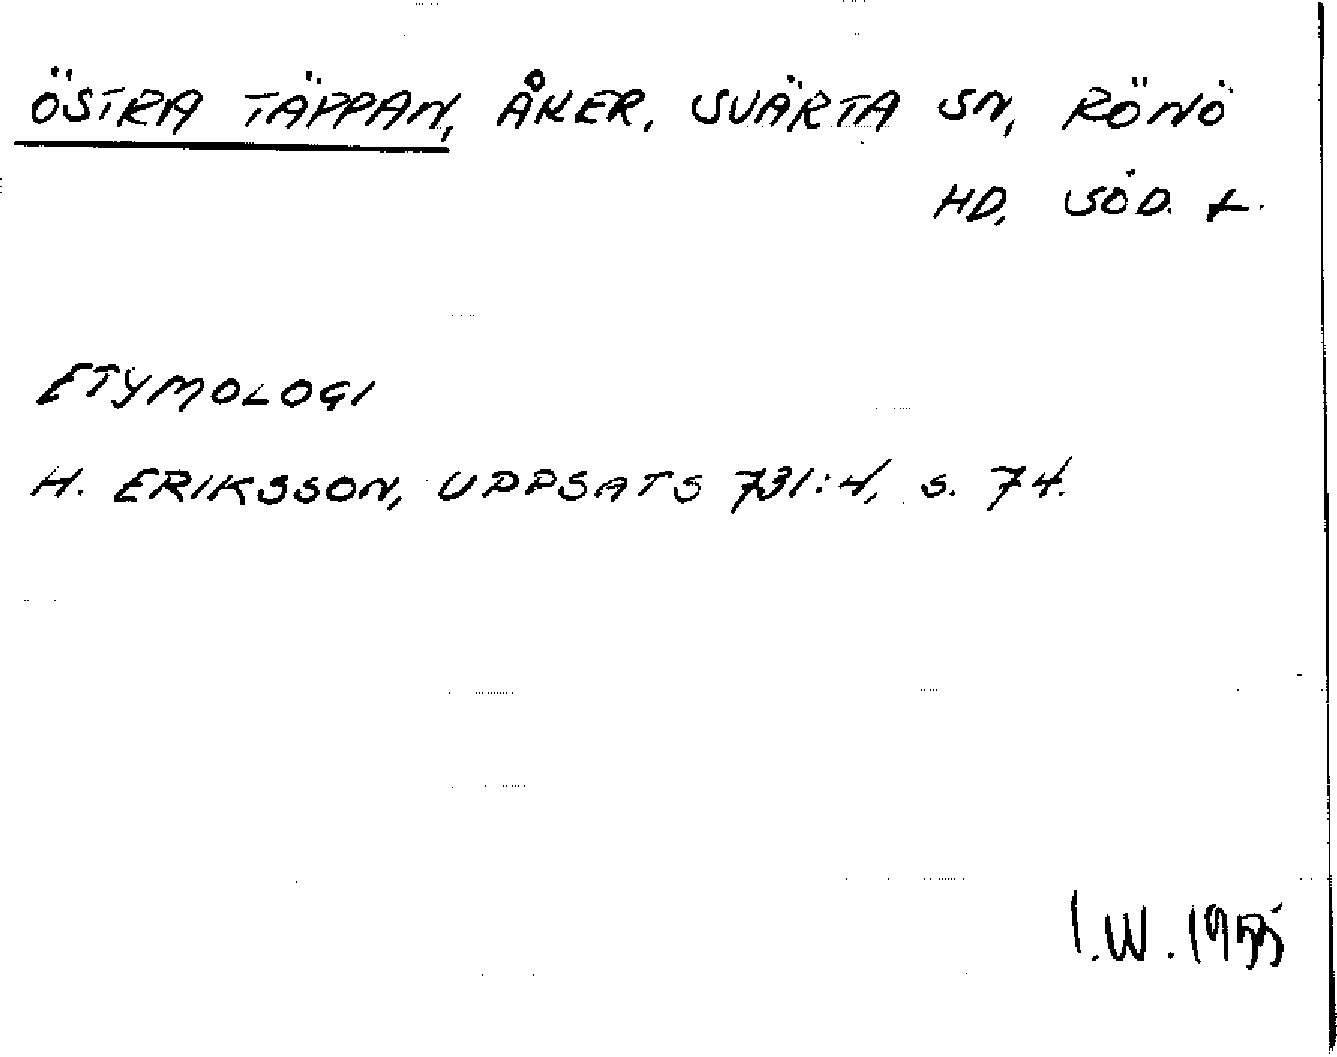 ÖSTRA TÄPPAN, ÅKER, SVÄRTA SN, RÖNÖ
HD, SÖD. L.
ETYMOLOGI
H. ERIKSSON, UPPSATS 731:4, s. 74.
I.W. 1955